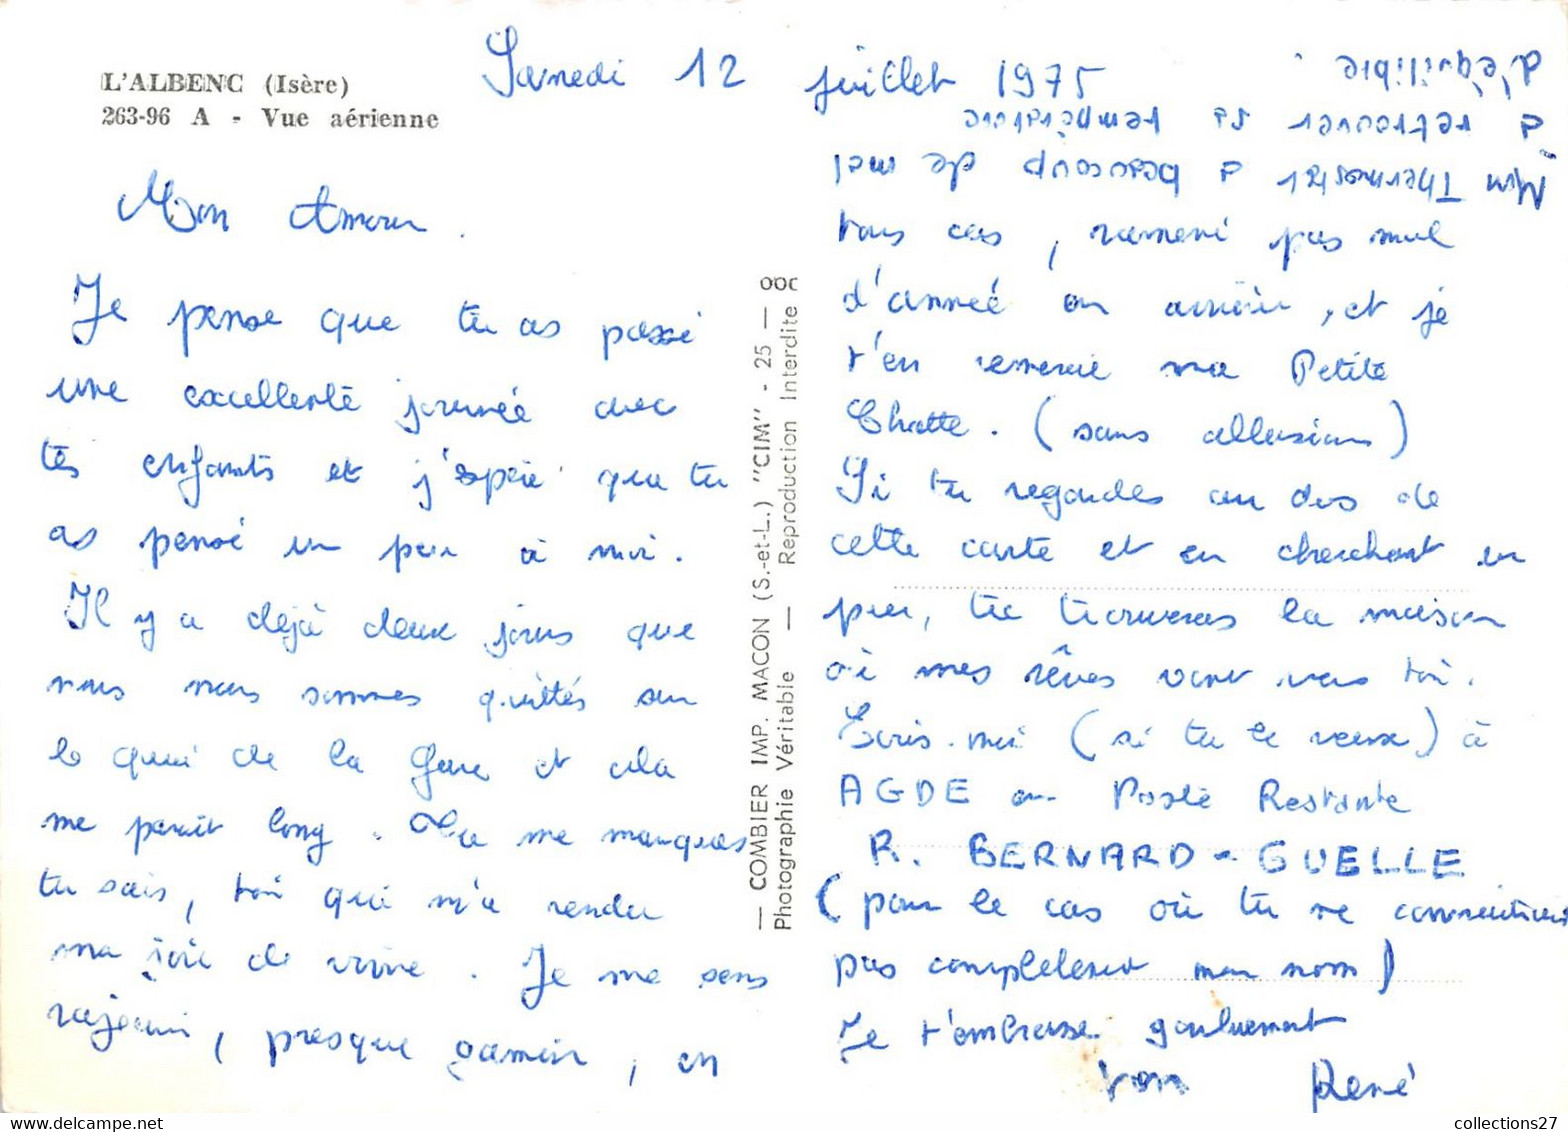 L'ALBENC (Isère)
263-96 A - Vue aérienne
Samedi 12 juillet 1975
Mon Amour.
Je pense que tu as passé
une excellente journée avec
tes enfants et j'espère que tu
as pensé un peu à moi.
Il y a déjà deux jours que
nous nous sommes quittés sur
le quai de la Gare et cela
me parait long. Tu me manques
tu sais, toi qui m'a rendu
ma joie de vivre. Je me sens
rajeuni, presque gamin, en
tous cas, ramené pas mal
d'année en arrière, et je
t'en remercie ma Petite
Chatte. (sans allusions)
Si tu regardes au dos de
cette carte et en cherchant un
peu, tu trouveras la maison
où mes rêves vont vers toi.
Ecris-moi (si tu le veux) à
AGDE en Poste Restante
R. BERNARD-GUELLE
(pour le cas où tu ne connaitrais
pas complètement mon nom)
Je t'embrasse goulument
ton René
Mon Thermostat a beaucoup de mal
a retrouver sa température
d'équilibre.
— COMBIER IMP. MACON (S.-et-L.) "CIM" - 25 —
Photographie Véritable — Reproduction Interdite
collections27